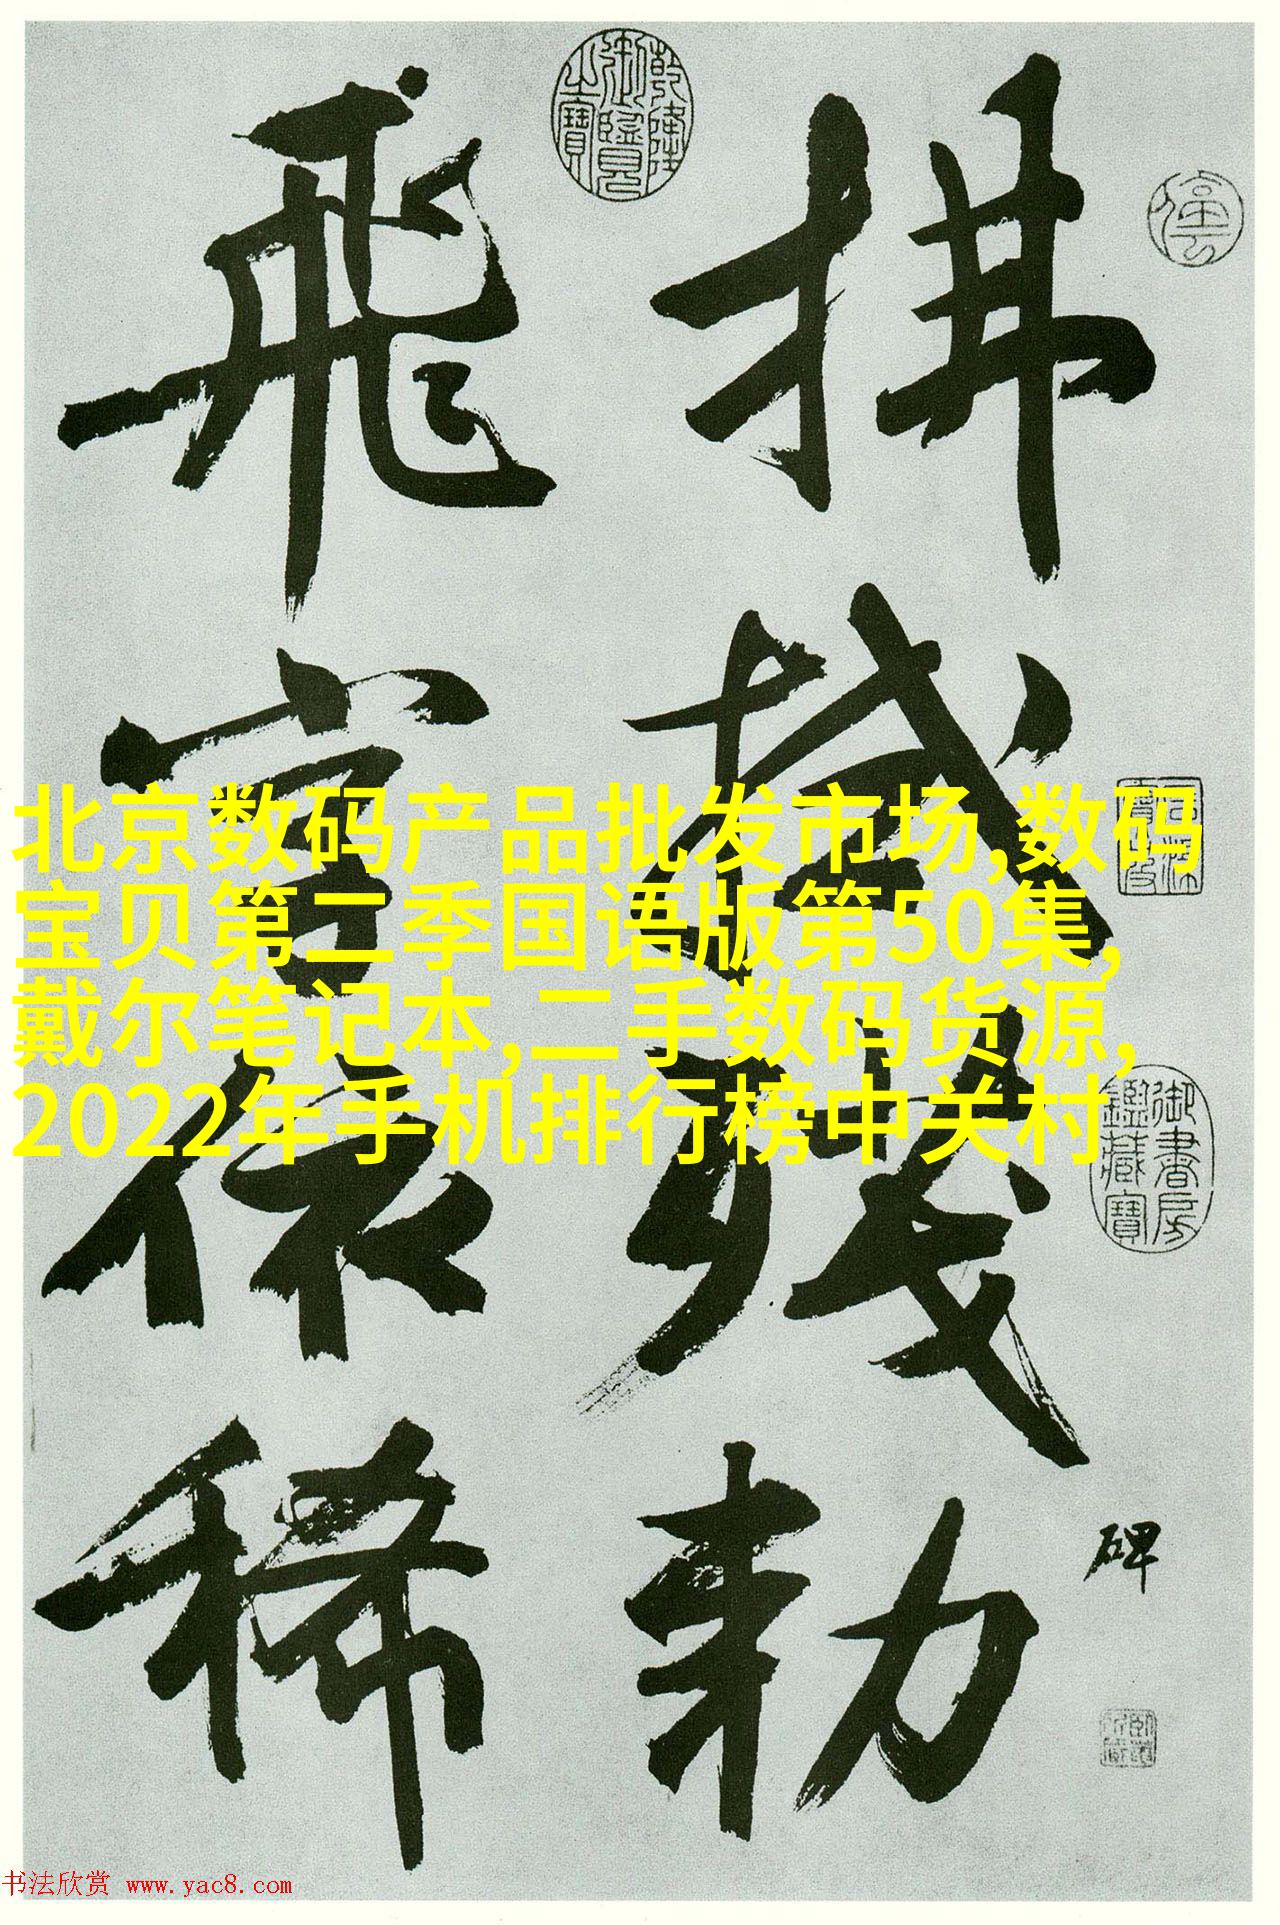 拂拭殘勅
碑
飛字依稀
乾隆御覽之寶
御書房鑑藏寶
北京数码产品批发市场,数码
宝贝第二季国语版第50集,
戴尔笔记本,二手数码货源,
2022年手机排行榜中关村
书法欣赏 www.yac8.com